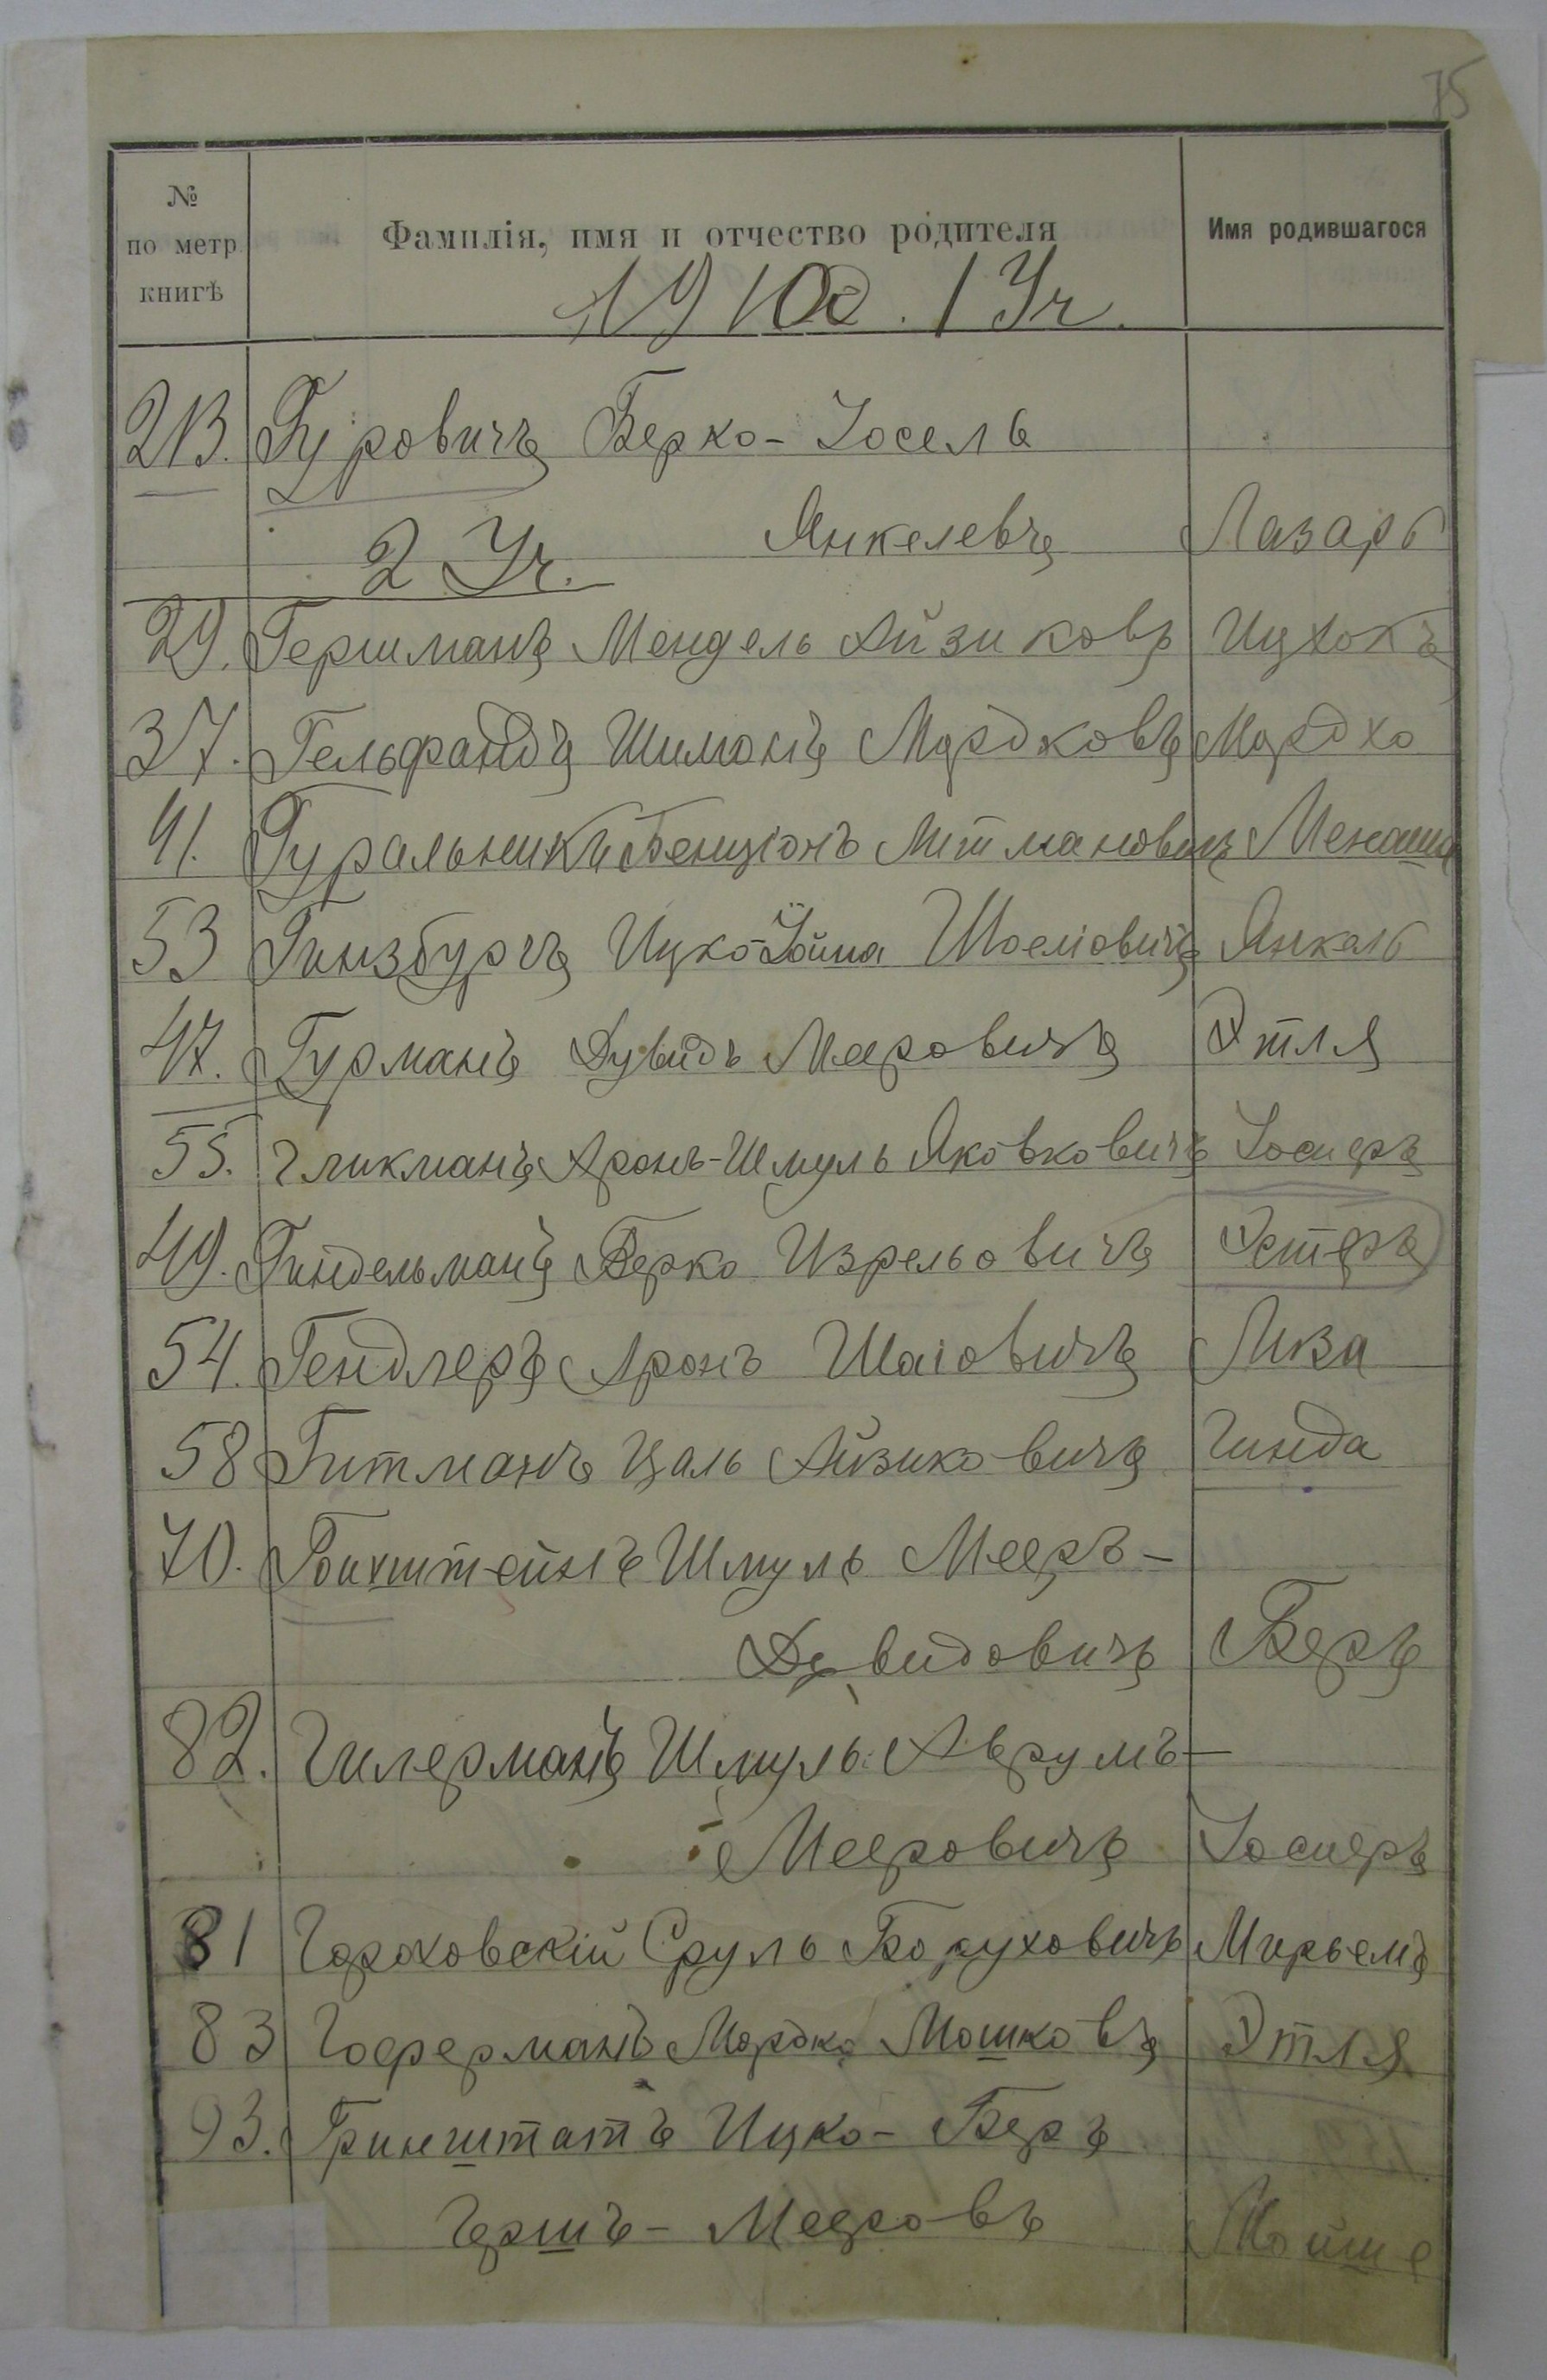 75
№ по метр. книгѣ
Фамилія, имя и отчество родителя
Имя родившагося
1910 г. 1 Уч.
213. Гуровичъ Берко-Іосель
Янкелевъ Лазарь
2 Уч.
29. Гершманъ Мендель Айзиковъ Ицхокъ
37. Гельфандъ Шимонъ Мордковъ Мордхо
41. Гуральникъ Бенціонъ Менаша
53 Гинзбургъ Ицко-Іойна Шоеліовичъ Янкель
47. Гурманъ Дувидъ Мееровичъ Этля
55. Гликманъ Аронъ-Шмуль Яковковичъ Іосиеръ
49. Гиндельманъ Берко Изрельовичъ Эстеръ
54. Гендлеръ Аронъ Шаіовичъ Лиза
58 Гитманъ Цаль Айзиковичъ Гинда
70. Шмуль Мееръ-
Дувидовичъ Беръ
82. Гилерманъ Шмуль Аврумъ-
Мееровичъ Іосиеръ
81 Гороховскій Сруль Боруховичъ Мирьемъ
83 Гоферманъ Мордко Мошковъ Этля
93. Гринштатъ Ицко-Беръ
Гершъ-Мееровъ Мойше